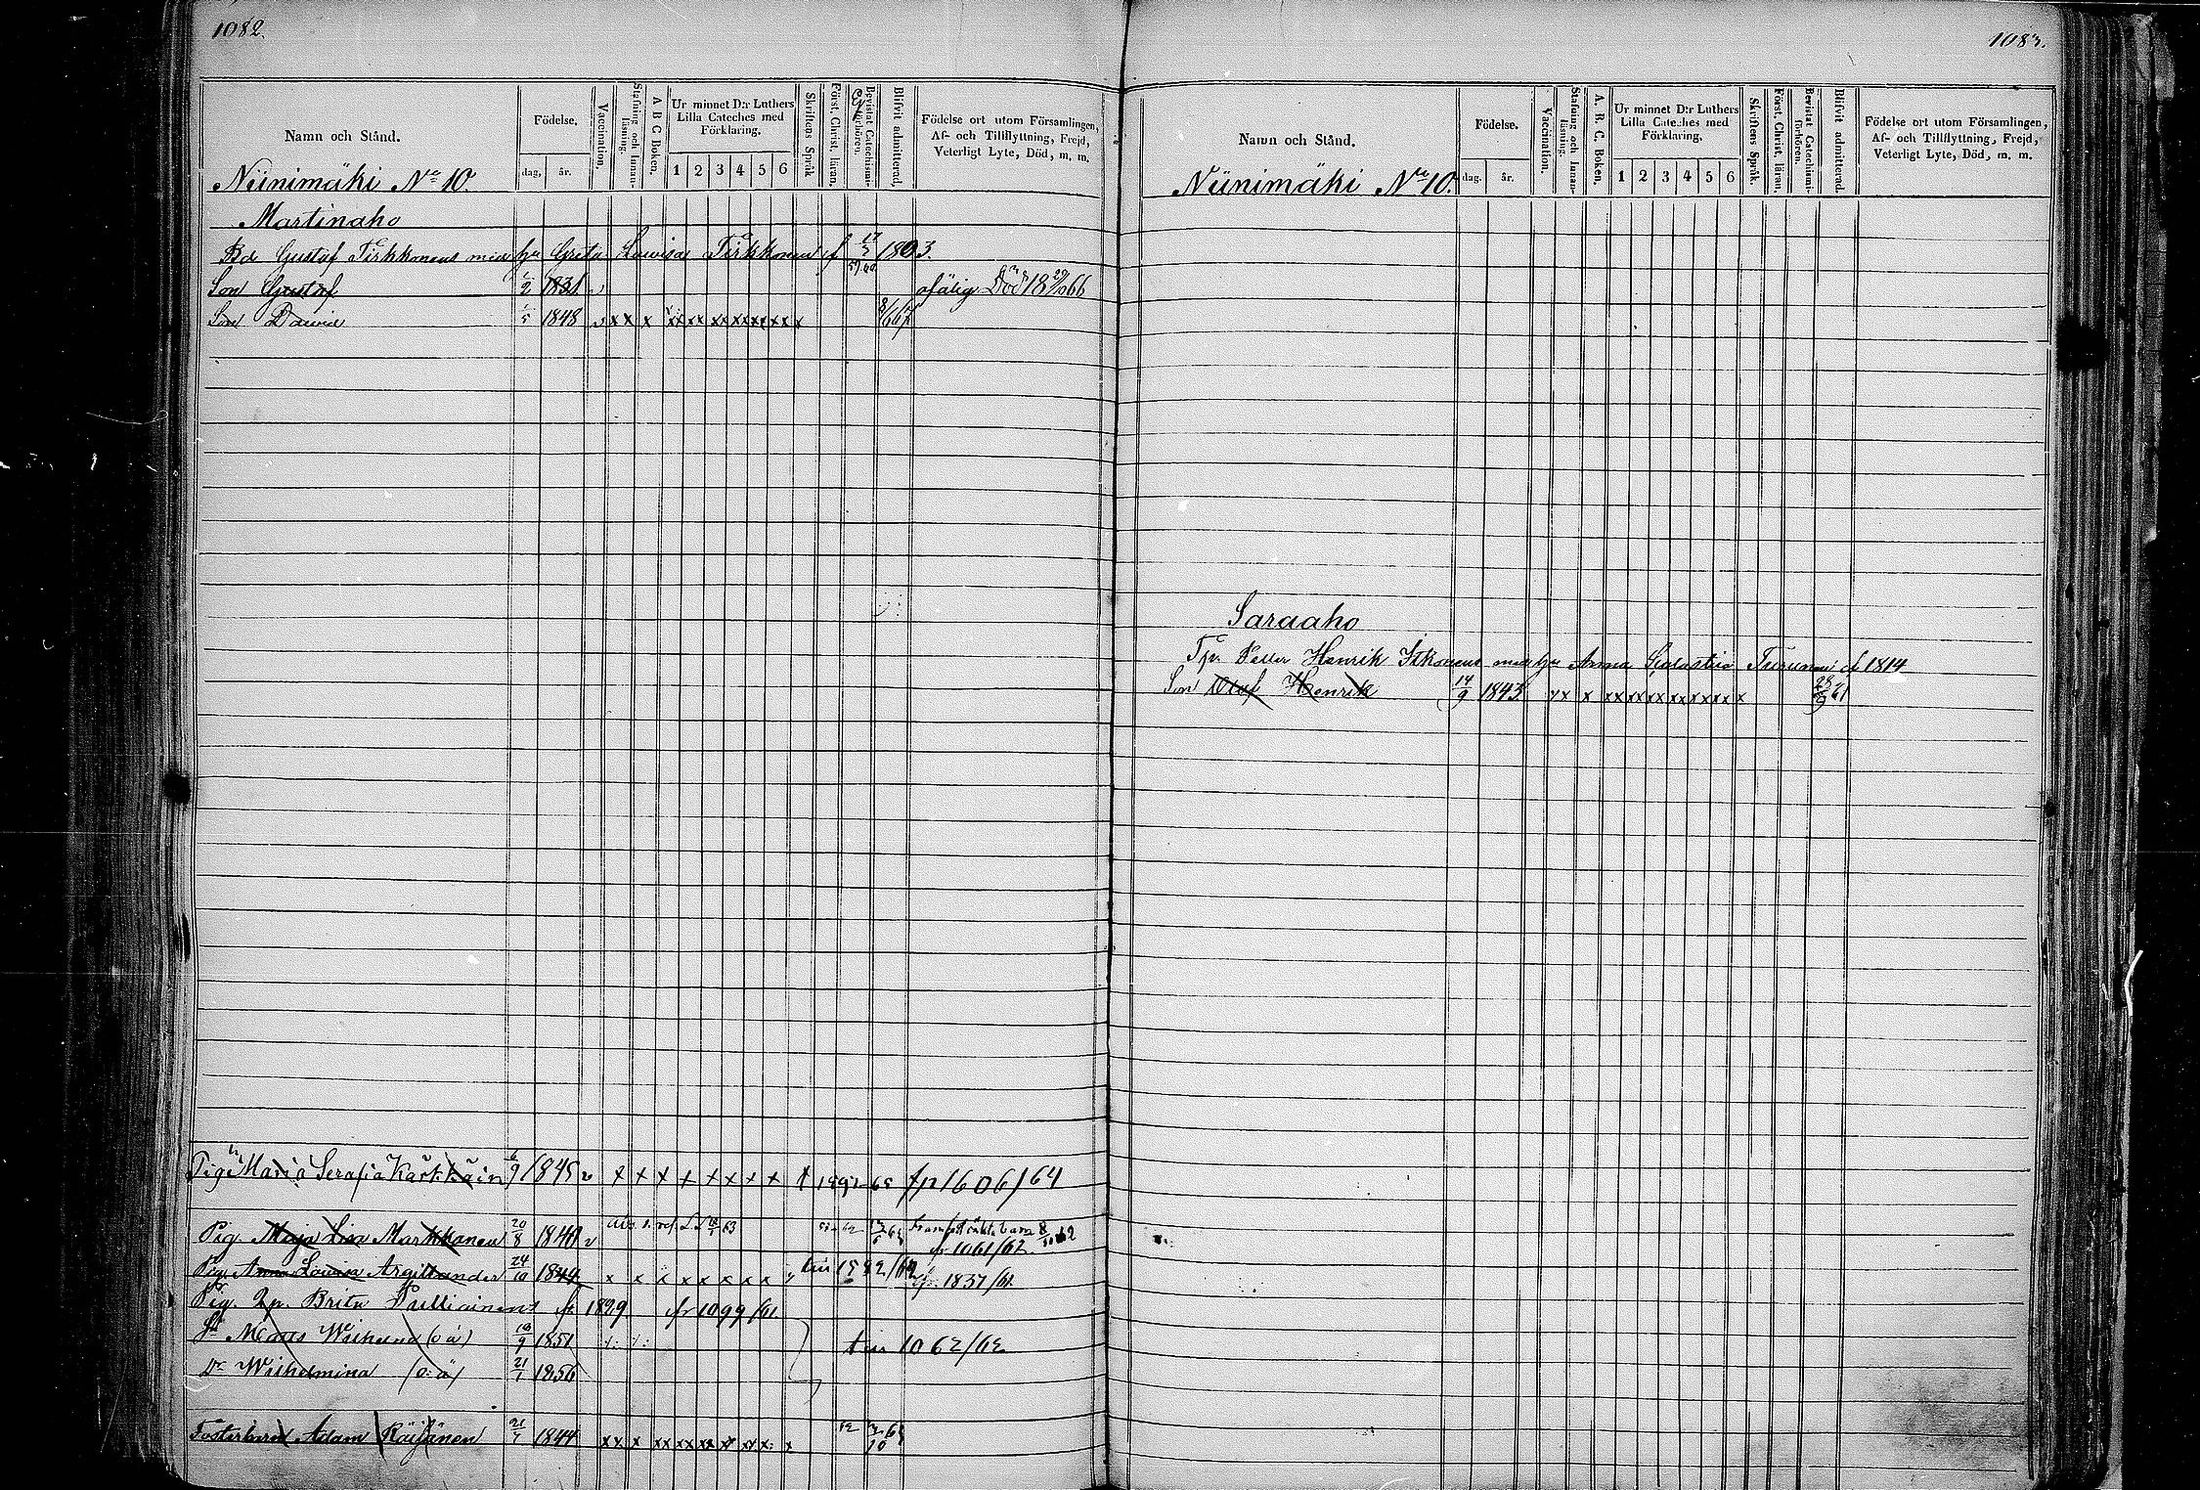 1082.
Namn och Stånd.
Födelse.
dag, år.
Vaccination.
Stafning och Innan-
läsning.
A B C Boken.
Ur minnet D:r Luthers
Lilla Cateches med
Förklaring.
1 2 3 4 5 6
Skriftens Språk
Först. Christ. läran.
Bevistat Catechismi-
förhören.
Blifvit admitterad.
Födelse ort utom Församlingen,
Af- och Tillflyttning, Frejd,
Veterligt Lyte, Död, m. m.
Niinimäki No 10.
Martinaho
Gustaf Tirkkonens med hu Greta Lowisa Tirkkonen f 17/3 1803.
Son Gustaf 2 1831 ofälig Död 18 29/10 66
Son David 1/5 1848 v x x x xx xx xx xx xx x x 8/6 67
Pig Maria Serafia Karkkain 6/9 1845 v x x x x x x x x 65 fr 1606/64
Pig. Maja Lisa Markkanen 20/8 1840 v
fr 1061/62
Pig. Anna Lowisa Argillander 24/10 1849 x x x x x x x x till 1582/62 fr. 1837/61.
Pig. Brita f 1829 fr 1099/61.
Wilhelm (oä) 18/9 1851 till 1062/62
Dr Wilhelmina (o:ä) 21/1 1856
Fosterbarn Adam Räisänen 21/7 1844 xx x xx xx xx x xx xx x
1083.
Namn och Stånd.
Födelse.
dag. år.
Vaccination.
Stafning och Innan-
läsning.
A. B. C. Boken.
Ur minnet D:r Luthers
Lilla Cateches med
Förklaring.
1 2 3 4 5 6
Skriftens Språk.
Först. Christ. läran.
Bevistat Catechismi-
förhören.
Blifvit admitterad.
Födelse ort utom Församlingen,
Af- och Tillflyttning, Frejd,
Veterligt Lyte, Död, m. m.
Niinimäki No 10.
Saraaho
Petter Henrik Itkonens med hu Anna Turunen f 1814
Son Olof Henrik 14/9 1843 xx x xx xx xx xx xx x x